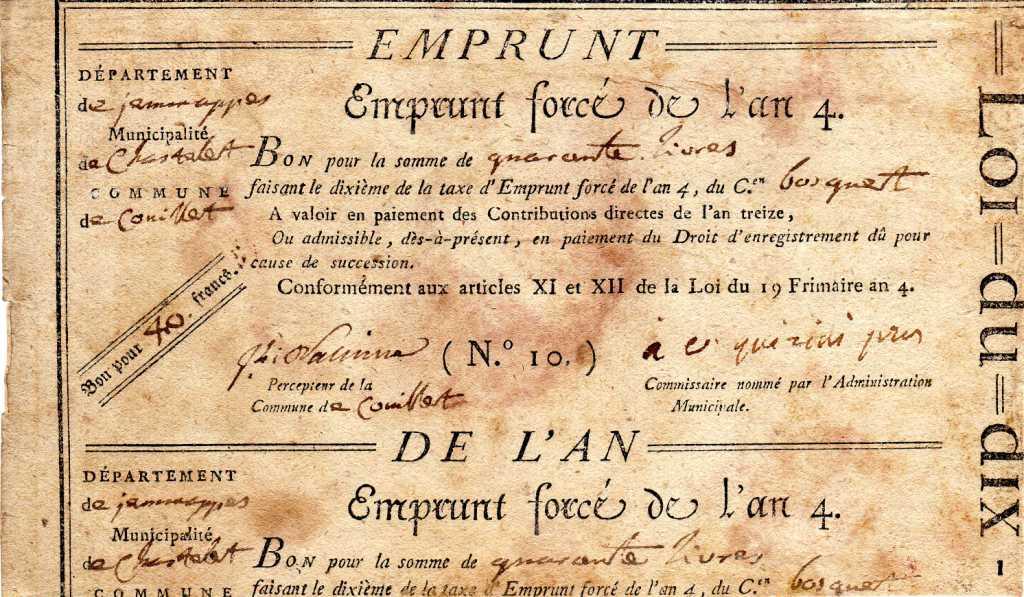 EMPRUNT
DÉPARTEMENT
de jemmappes
Municipalité
de Chastelet
COMMUNE
de Couillet
Emprunt forcé de l'an 4.
BON pour la somme de quarante livres
faisant le dixième de la taxe d'Emprunt forcé de l'an 4, du C.en bosquet
A valoir en paiement des Contributions directes de l'an treize,
Ou admissible, dès-à-présent, en paiement du Droit d'enregistrement dû pour
cause de succession.
Conformément aux articles XI et XII de la Loi du 19 Frimaire an 4.
Bon pour 40 francs.
(N.º 10.)
Percepteur de la
Commune de Couillet
Commissaire nommé par l'Administration
Municipale.
DE L'AN
DÉPARTEMENT
de jemmappes
Municipalité
de Chastelet
COMMUNE
Emprunt forcé de l'an 4.
BON pour la somme de quarante livres
faisant le dixième de la taxe d'Emprunt forcé de l'an 4, du C.en bosquet
LOI=du=dIX
1